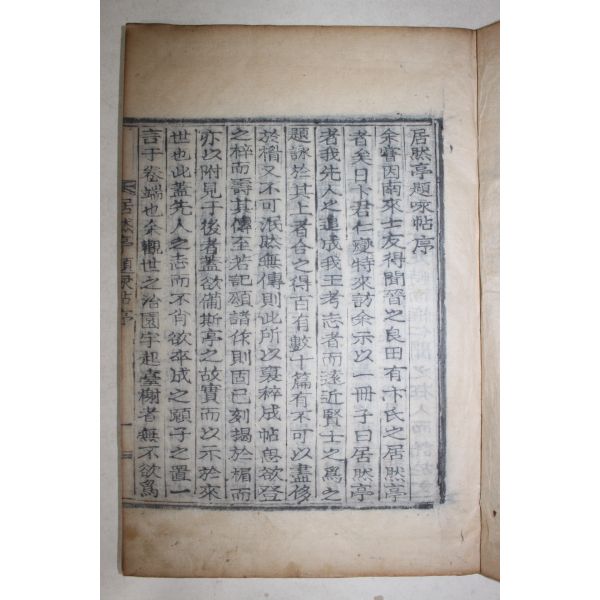 居然亭題咏帖序
余嘗因南來士友得聞晉之良田有卞氏之居然亭
者矣日卞君仁燮特來訪余示以一冊子曰居然亭
者我先人之追成我王考志者而遠近賢士之爲之
題詠於其上者合之得百有數十篇有不可以盡侈
於楣又不可泯然無傳則此所以裒稡成帖思欲登
之梓而壽其傳至若記頌諸作則固已刻揭於楣而
亦以附見于後者蓋欲備斯亭之故實而以示於來
世也此蓋先人之志而不肖欲卒成之願子之置一
言于卷端也余觀世之治園宇起臺榭者無不欲爲
居然亭題咏帖序 一